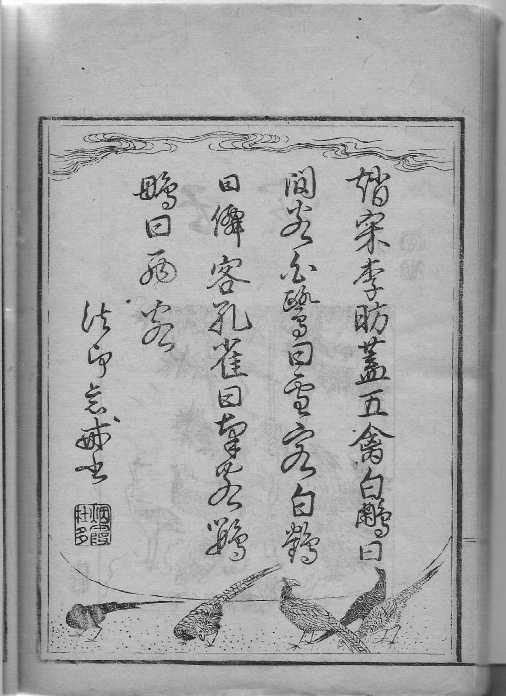 趙宋李昉蓋五禽白鷴曰
閑客白鷺曰雪客白鶴
曰僊客孔雀曰南客鸚
鵡曰西客
法印
書